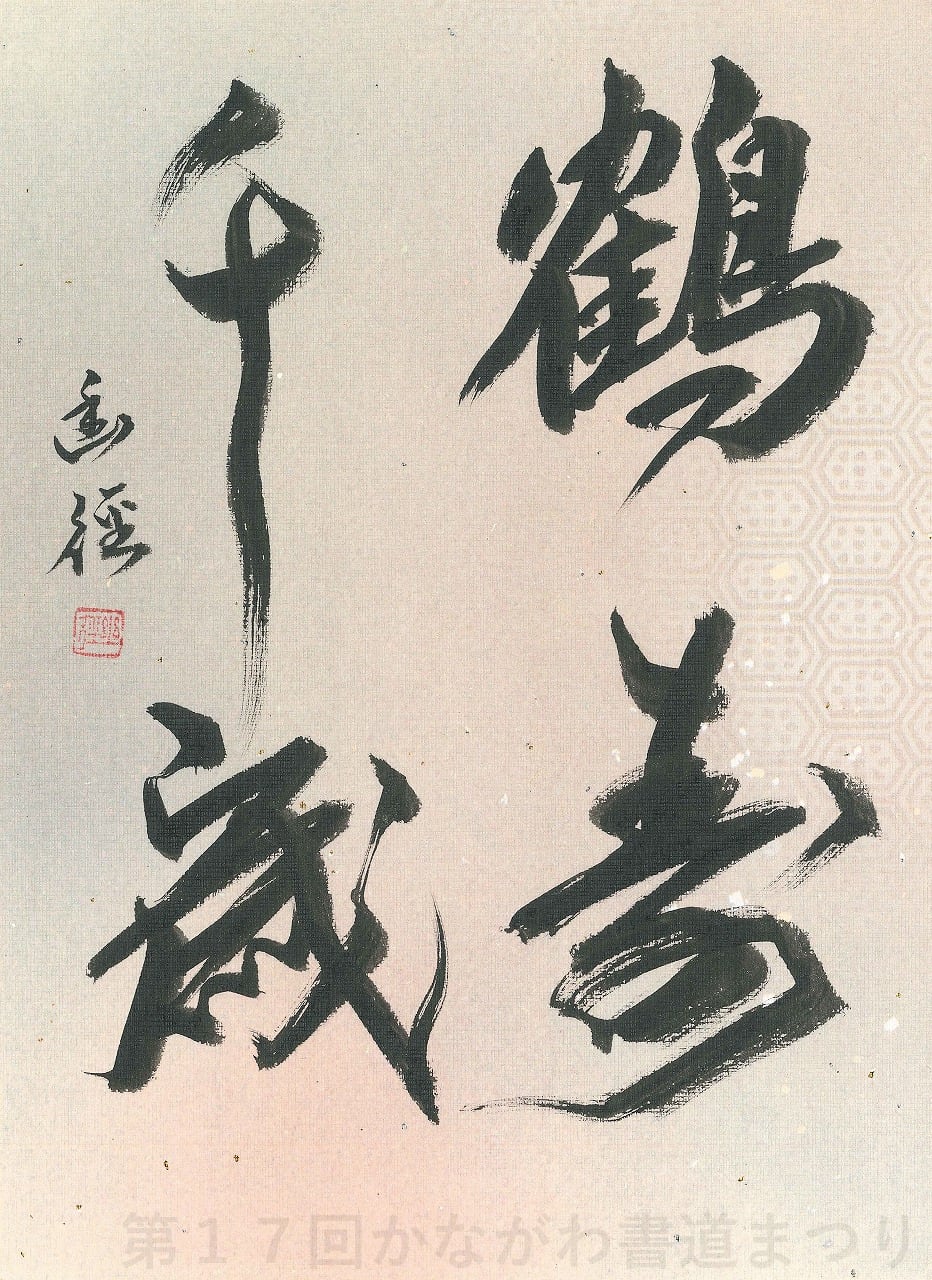 鶴寿
千歳
幽径
第１７回かながわ書道まつり